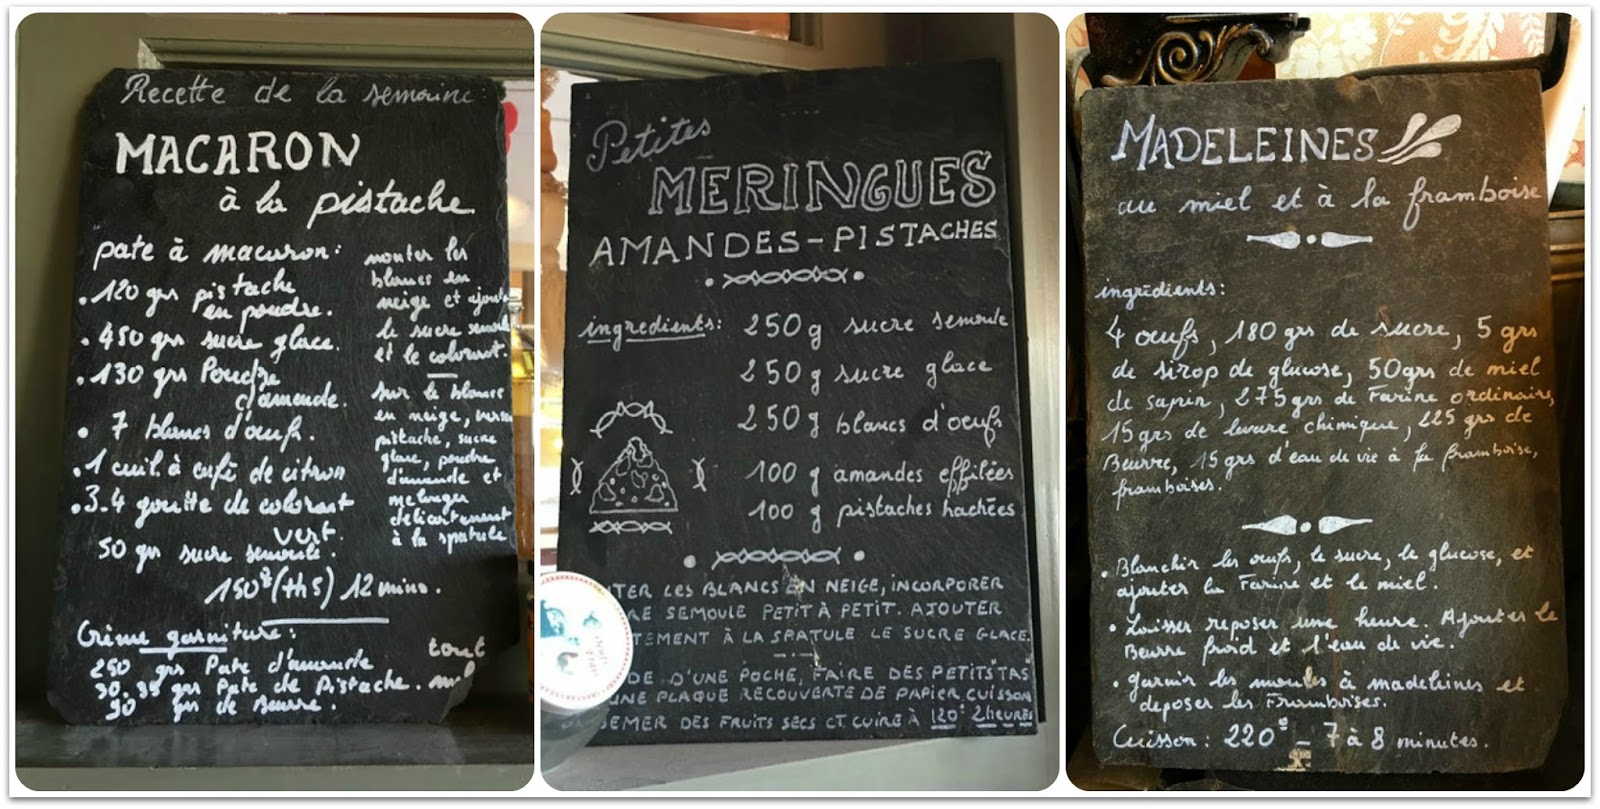 Recette de la semaine:
MACARON
à la pistache
pate à macaron:
• 120 grs pistache
en poudre.
• 450 grs sucre glace.
• 130 grs Poudre
d'amende.
• 7 blancs d'oeufs.
• 1 cuil à café de citron
• 3.4 goutte de colorant
vert.
50 grs sucre semoule.
150° (th5) 12 mins.
monter les
blancs en
neige et ajouter
le sucre semoule
et le colorant.
sur le blancs
en neige, verser
pistache, sucre
glace, poudre
d'amende et
melanger
delicatement
à la spatule
Crème garniture:
250 grs Pate d'amende
30.35 grs Pate de Pistache.
90 grs de Beurre.
tout
Petites
MERINGUES
AMANDES-PISTACHES
ingredients: 250 g sucre semoule
250 g sucre glace
250 g blancs d'oeufs
100 g amandes effilées
100 g pistaches hachées
TER LES BLANCS EN NEIGE, INCORPORER
RE SEMOULE PETIT À PETIT. AJOUTER
TEMENT À LA SPATULE LE SUCRE GLACE.
DE D'UNE POCHE, FAIRE DES PETITS "TAS
UNE PLAQUE RECOUVERTE DE PAPIER CUISSON
SEMER DES FRUITS SECS ET CUIRE À 120° 2 HEURES
MADELEINES
au miel et à la framboise
ingrédients:
4 oeufs, 180 grs de sucre, 5 grs
de sirop de glucose, 50 grs de miel
de sapin, 275 grs de Farine ordinaire,
15 grs de levure chimique, 225 grs de
Beurre, 15 grs d'eau de vie à la framboise,
framboises.
• Blanchir les oeufs, le sucre, le glucose, et
ajouter la Farine et le miel.
• Laisser reposer une heure. Ajouter le
Beurre froid et l'eau de vie.
• garnir les moules à madeleines et
deposer les Framboises.
Cuisson: 220° – 7 à 8 minutes.